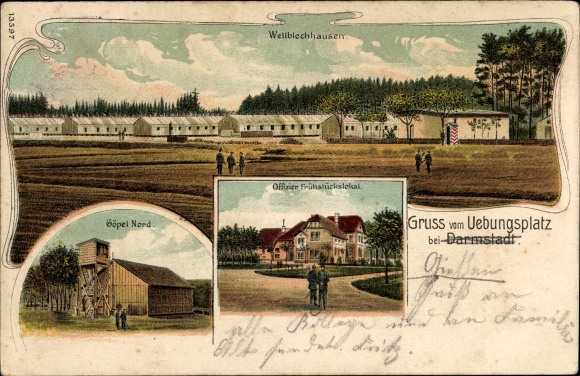 13597
Wellblechhausen.
Göpel Nord.
Offizier Frühstückslokal.
Gruss vom Uebungsplatz
bei Darmstadt.
Giessen
Gruß an
alle und an Familie
Fritz.